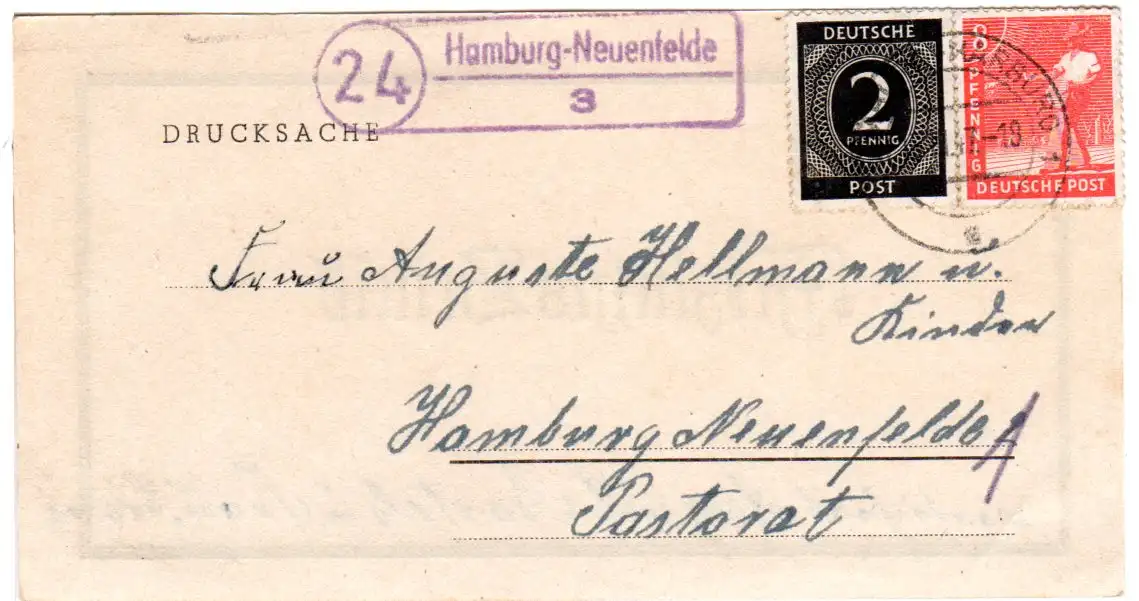 24
Hamburg-Neuenfelde
3
DRUCKSACHE
DEUTSCHE
2
PFENNIG
POST
8
PFENNIG
DEUTSCHE POST
-18
Frau Auguste Hellmann u.
Kinder
Hamburg Neuenfelde
Pastorat